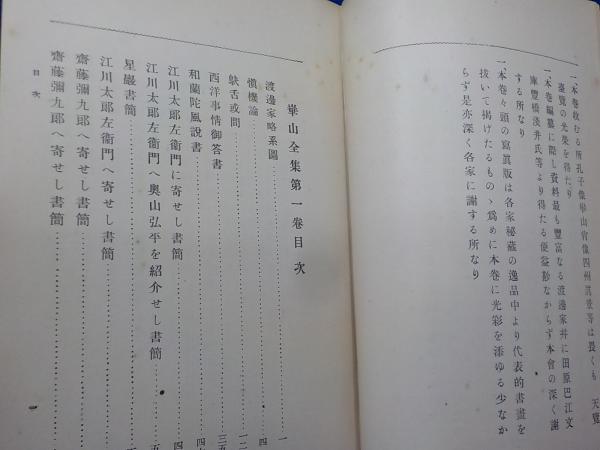 一、本卷收むる所孔子像崋山肖像四州眞景等は畏くも 天覽
臺覽の光榮を得たり
一、本卷編纂に際し資料最も豐富なる渡邊家幷に田原巴江文
庫豐橋淺井氏等より得たる便益尠なからず本會の深く謝
する所なり
一、本卷々頭の寫眞版は各家秘藏の逸品中より代表的書畫を
拔いて揭げたるものゝ爲めに本卷に光彩を添ゆる少なか
らず是亦深く各家に謝する所なり
崋山全集第一卷目次
渡邊家略系圖…………一
愼機論…………四
鴃舌或問…………
西洋事情御答書…………三五
和蘭陀風說書…………四
江川太郎左衞門に寄せし書簡…………四
江川太郎左衞門へ奧山弘平を紹介せし書簡…………五
星巖書簡…………
江川太郎左衞門へ寄せし書簡…………
齋藤彌九郎へ寄せし書簡…………
齋藤彌九郎へ寄せし書簡…………
目次
一